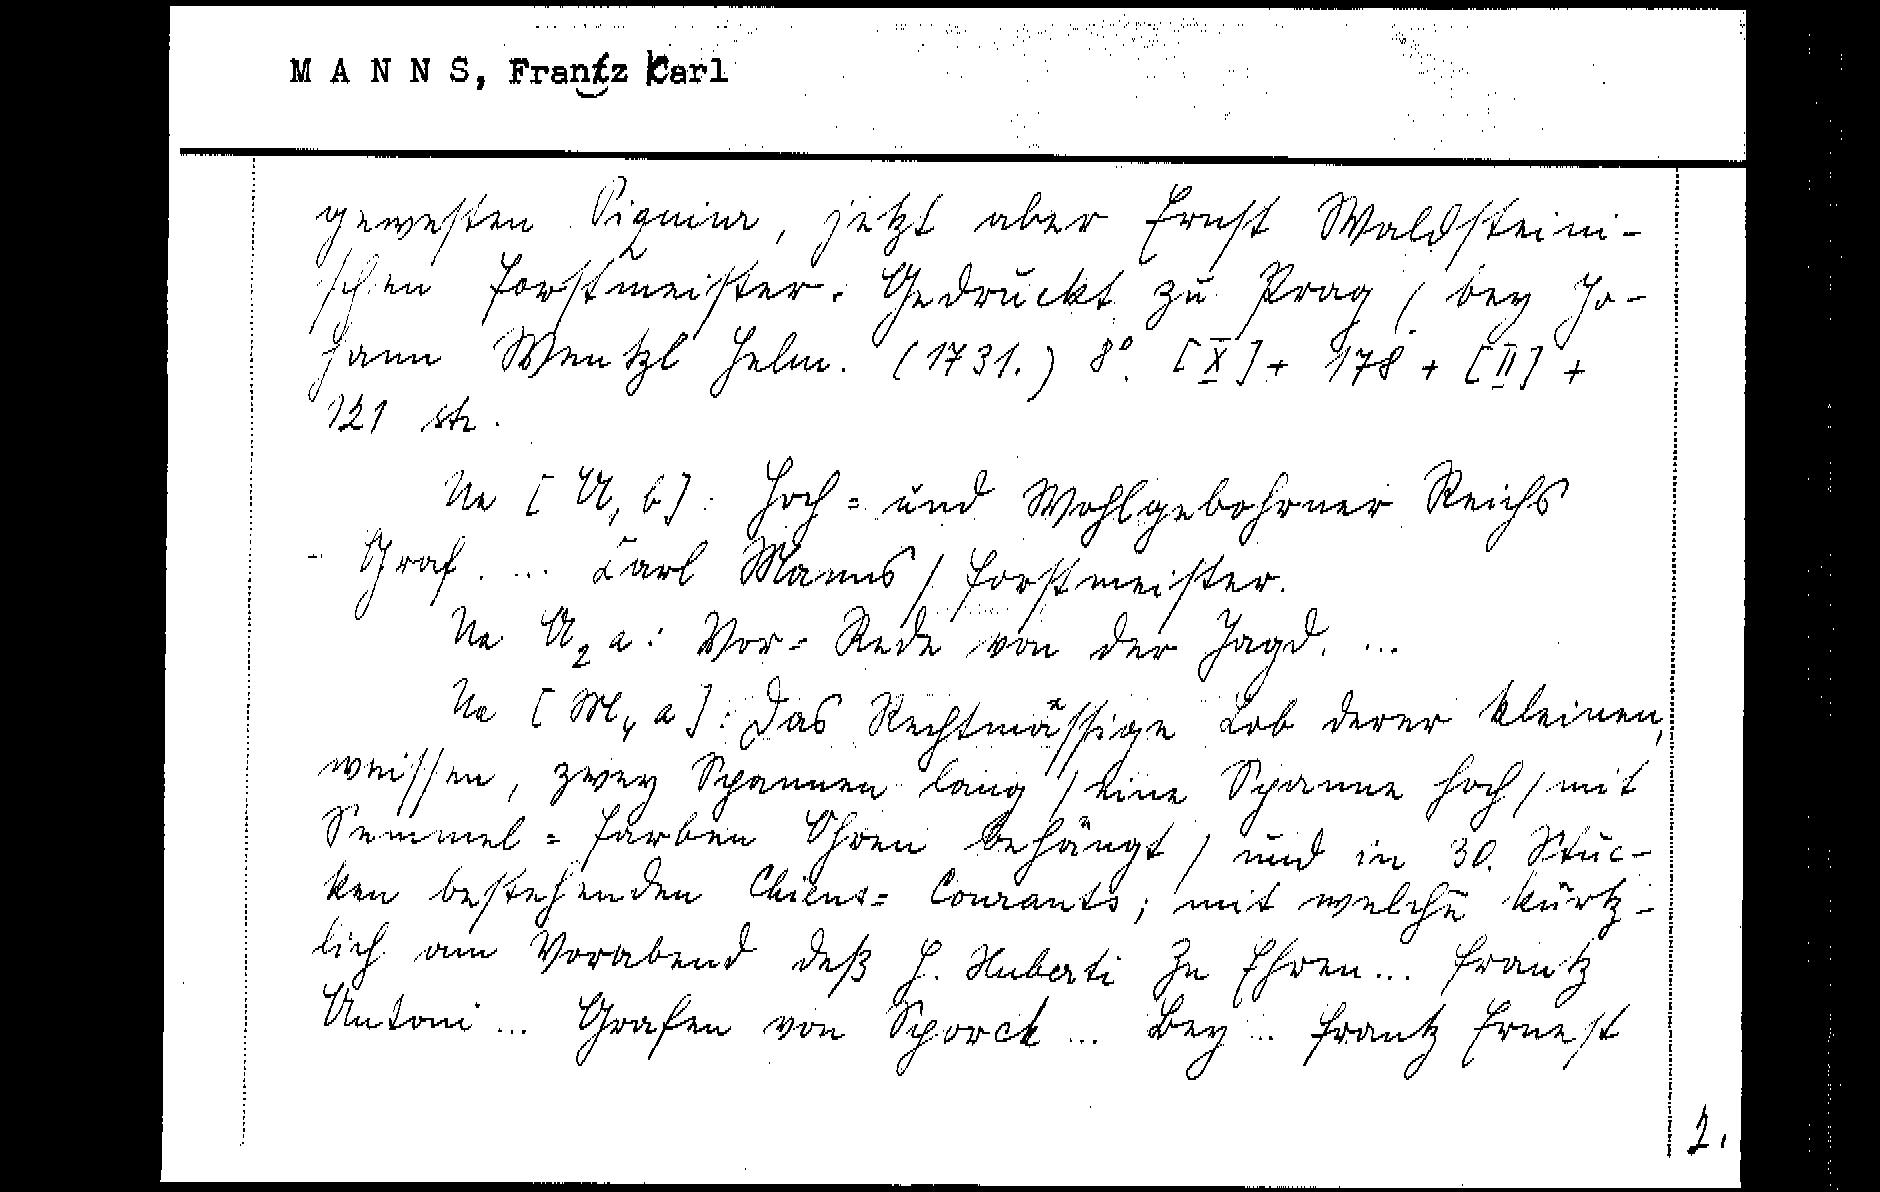 MANNS, Frantz Carl
gewesten Piqueur, jetzt aber Ernst Waldsteini-
schen Forstmeister. Gedruckt zu Prag / bey Jo-
hann Wentzl Helm. (1731.) 8°. [X] + 178 + [II] +
121 str.
Na [A, b]: Hoch= und Wohlgebohrner Reichs
- Graf. ... Carl Manns / Forstmeister.
Na A2 a: Vor= Rede von der Jagd. ...
Na [M4 a]: Das Rechtmässige Lob derer kleinen,
weissen, zwey Spannen lang / eine Spanne hoch / mit
Semmel= farben Ohren behängt / und in 30. Stuc-
ken bestehenden Chiens= Courants; mit welchē kürtz-
lich am Vorabend deß H. Huberti Zu Ehren... Frantz
Antoni... Grafen von Sporck... Bey... Frantz Ernest
2.